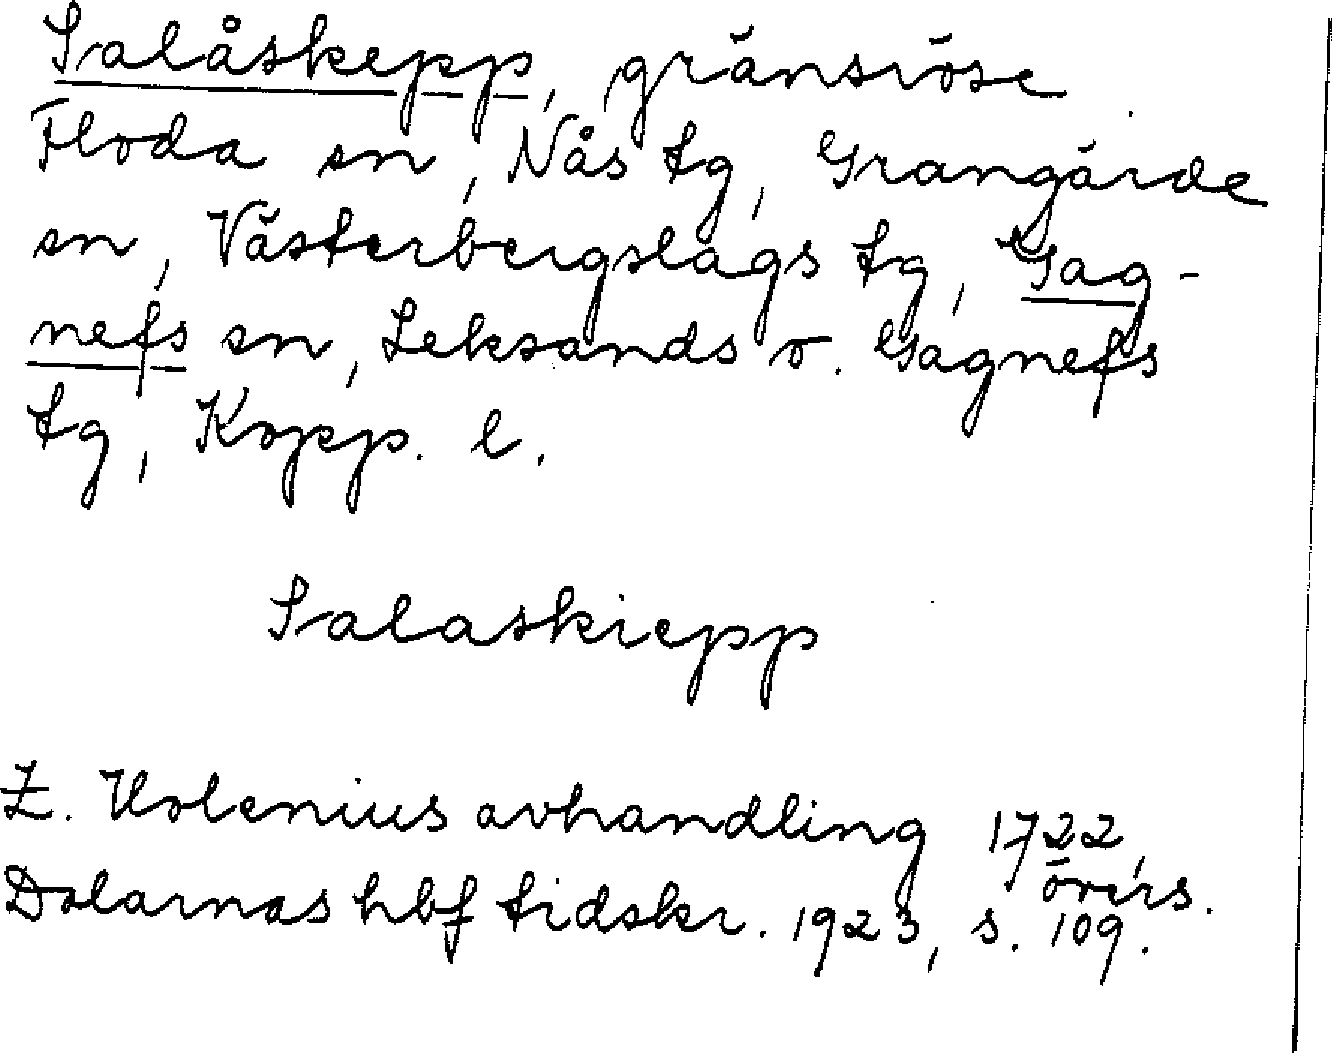 Salåskepp, gränsröse
Floda sn, Nås tg, Grangärde
sn, Västerbergslags tg, Gag-
nefs sn, Leksands o. Gagnefs
tg, Kopp. l.
Salaskiepp
Z. Holenius avhandling 1722,
övers.
Dalarnas hbf tidskr. 1923, s. 109.